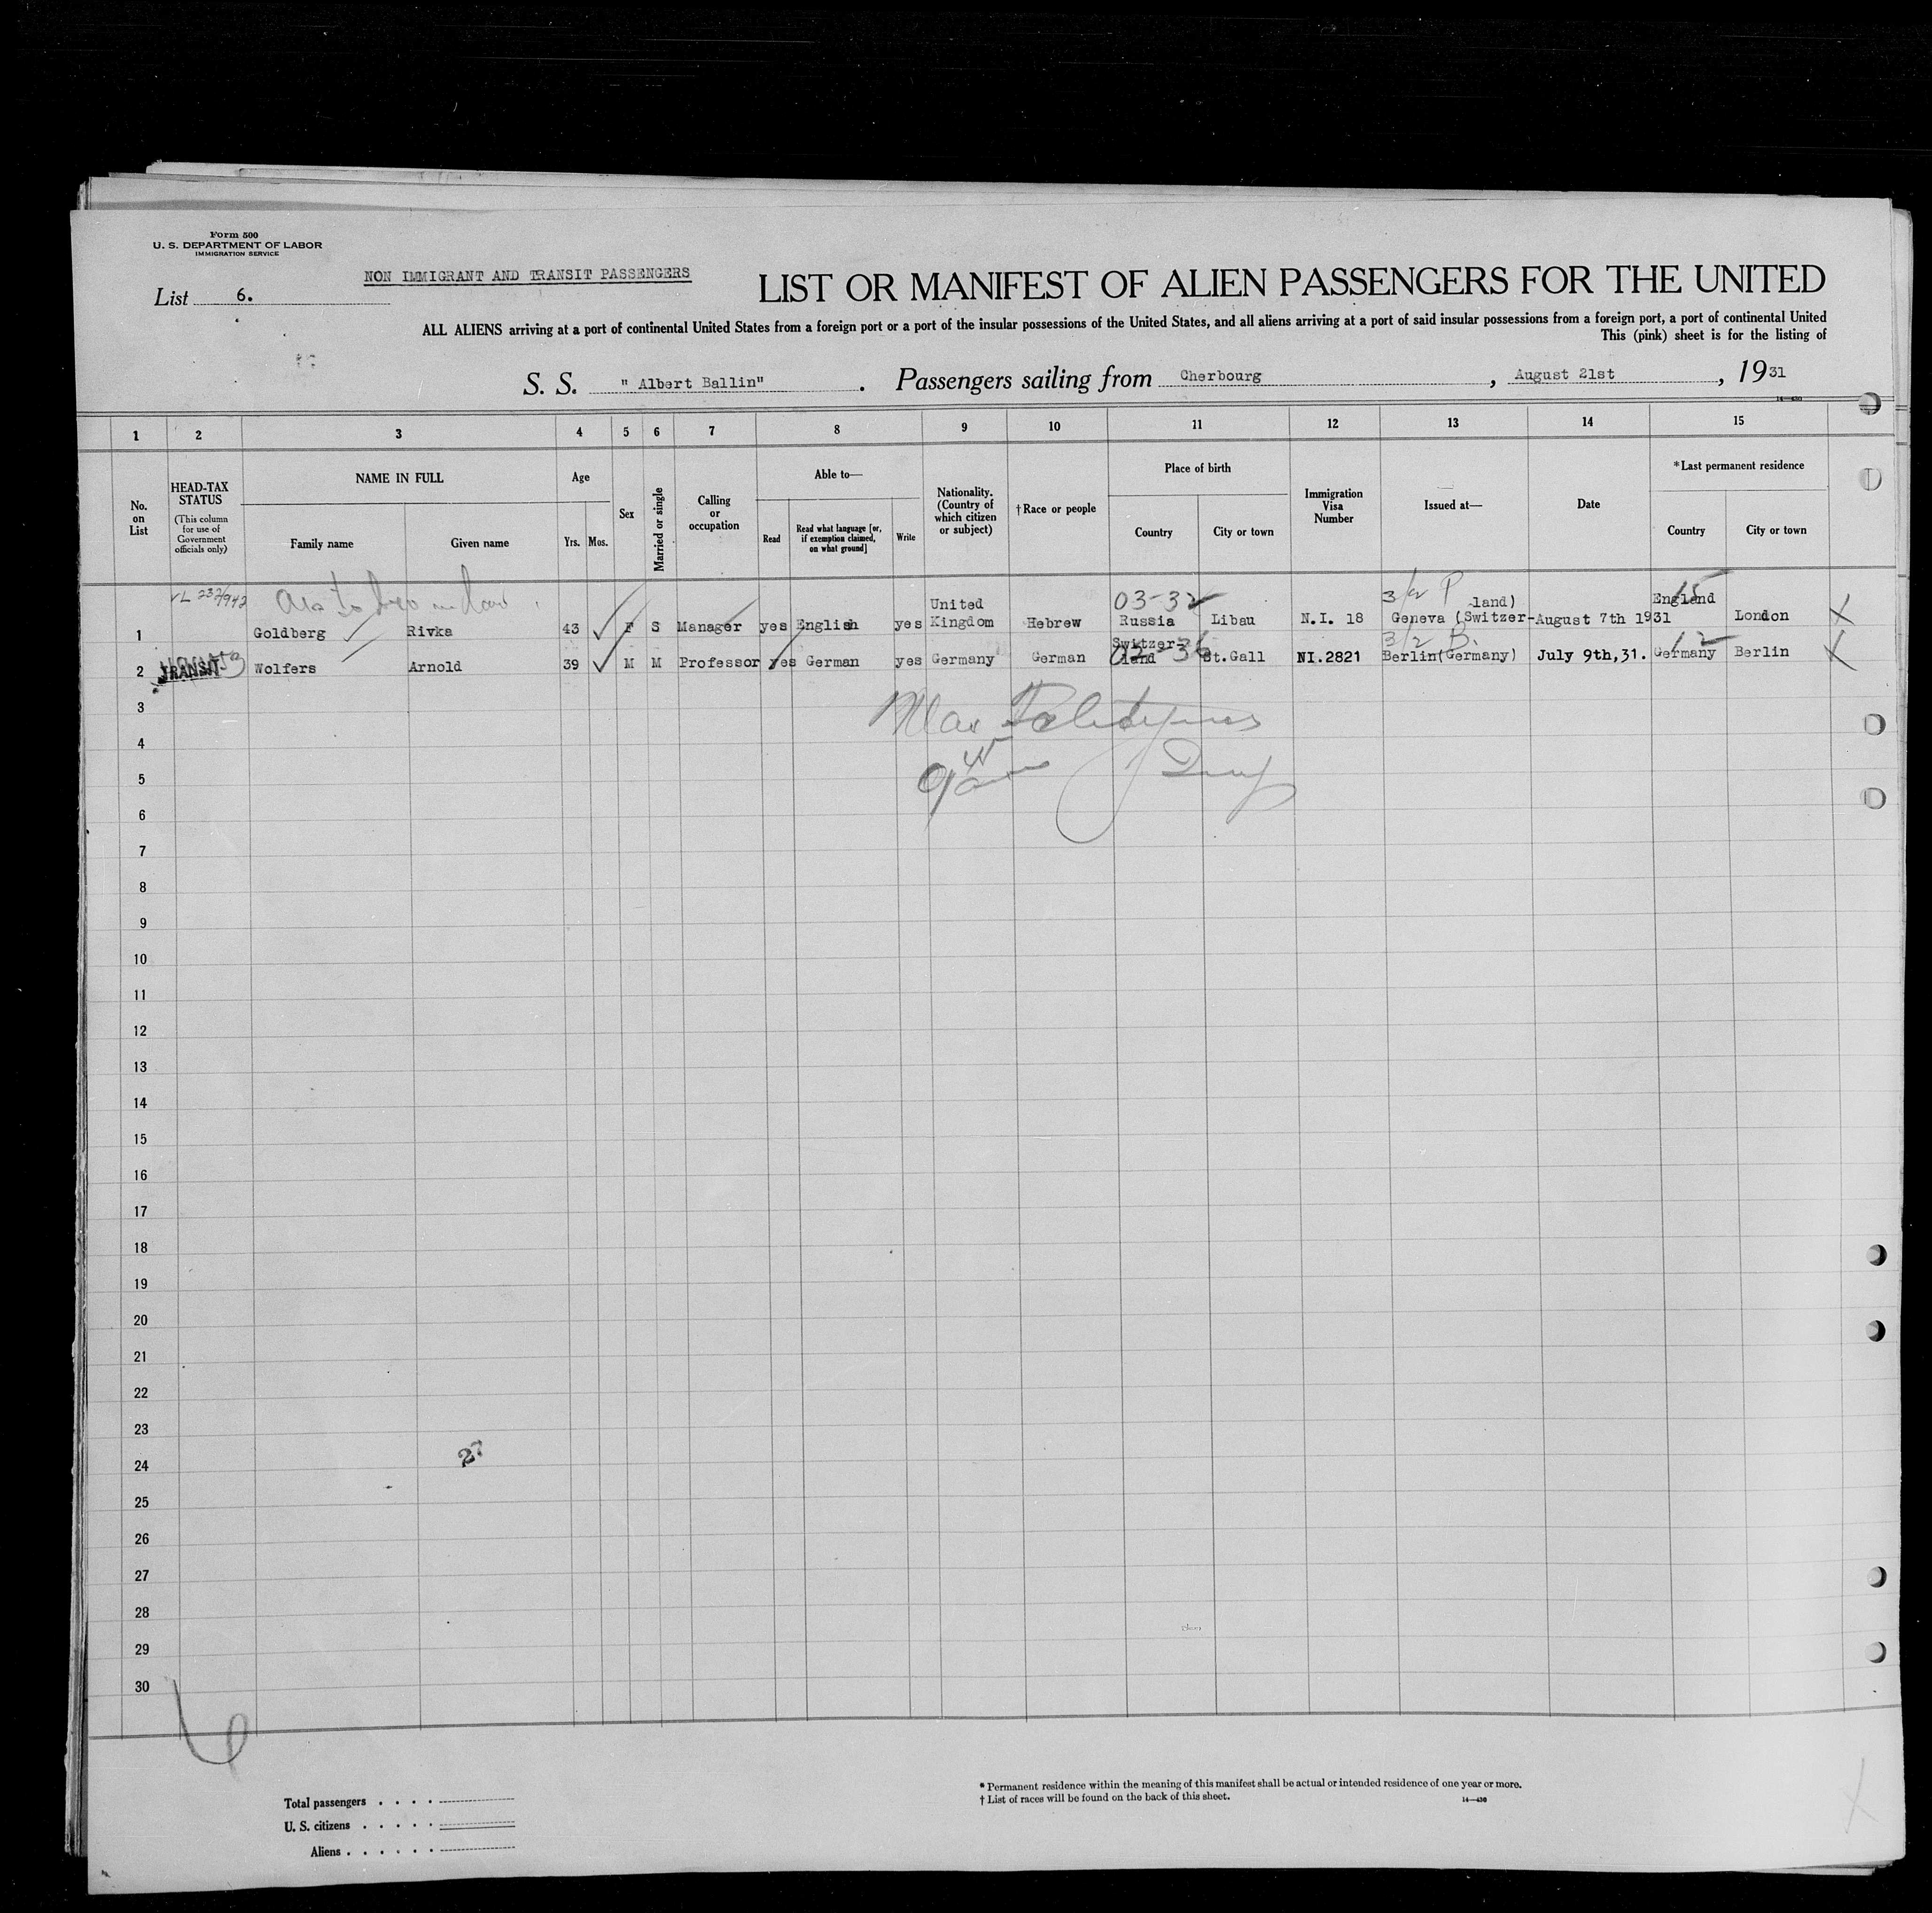 Form 500
U. S. DEPARTMENT OF LABOR
IMMIGRATION SERVICE
NON IMMIGRANT AND TRANSIT PASSENGERS
List 6.
LIST OR MANIFEST OF ALIEN PASSENGERS FOR THE UNITED
ALL ALIENS arriving at a port of continental United States from a foreign port or a port of the insular possessions of the United States, and all aliens arriving at a port of said insular possessions from a foreign port, a port of continental United
This (pink) sheet is for the listing of
S. S. " Albert Ballin" . Passengers sailing from Cherbourg , August 21st , 1931
14—430
1 2 3 4 5 6 7 8 9 10 11 12 13 14 15
No. on List
HEAD-TAX STATUS
(This column for use of Government officials only)
NAME IN FULL
Family name
Given name
Age
Yrs. Mos.
Sex
Married or single
Calling or occupation
Able to—
Read
Read what language [or, if exemption claimed, on what ground]
Write
Nationality. (Country of which citizen or subject)
†Race or people
Place of birth
Country
City or town
Immigration Visa Number
Issued at—
Date
*Last permanent residence
Country
City or town
03-32 3/2 P 15
1 Goldberg Rivka 43 F S Manager yes English yes United Kingdom Hebrew Russia Libau N.I. 18 Geneva (Switzer-land) August 7th 1931 England London
3/2 B. 12
2 TRANSIT Wolfers Arnold 39 M M Professor yes German yes Germany German Switzer-land St.Gall NI.2821 Berlin(Germany) July 9th,31. Germany Berlin
3
4
5
6
7
8
9
10
11
12
13
14
15
16
17
18
19
20
21
22
23
24
25
26
27
28
29
30
27
Total passengers
U. S. citizens
Aliens
* Permanent residence within the meaning of this manifest shall be actual or intended residence of one year or more.
† List of races will be found on the back of this sheet.
14—430